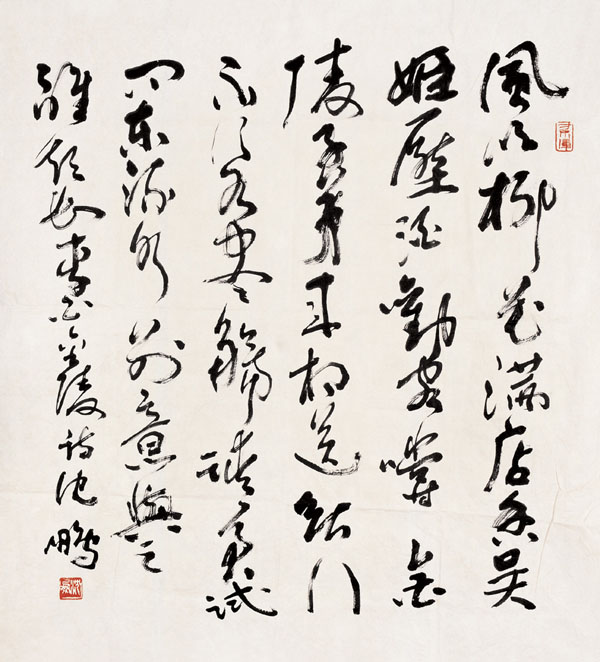 風吹柳花滿店香吴
姬壓酒勸客嚐金
陵子弟来相送欲行
不行各盡觴請君試
問東流水别意與之
誰短長李白金陵詩沈鵬